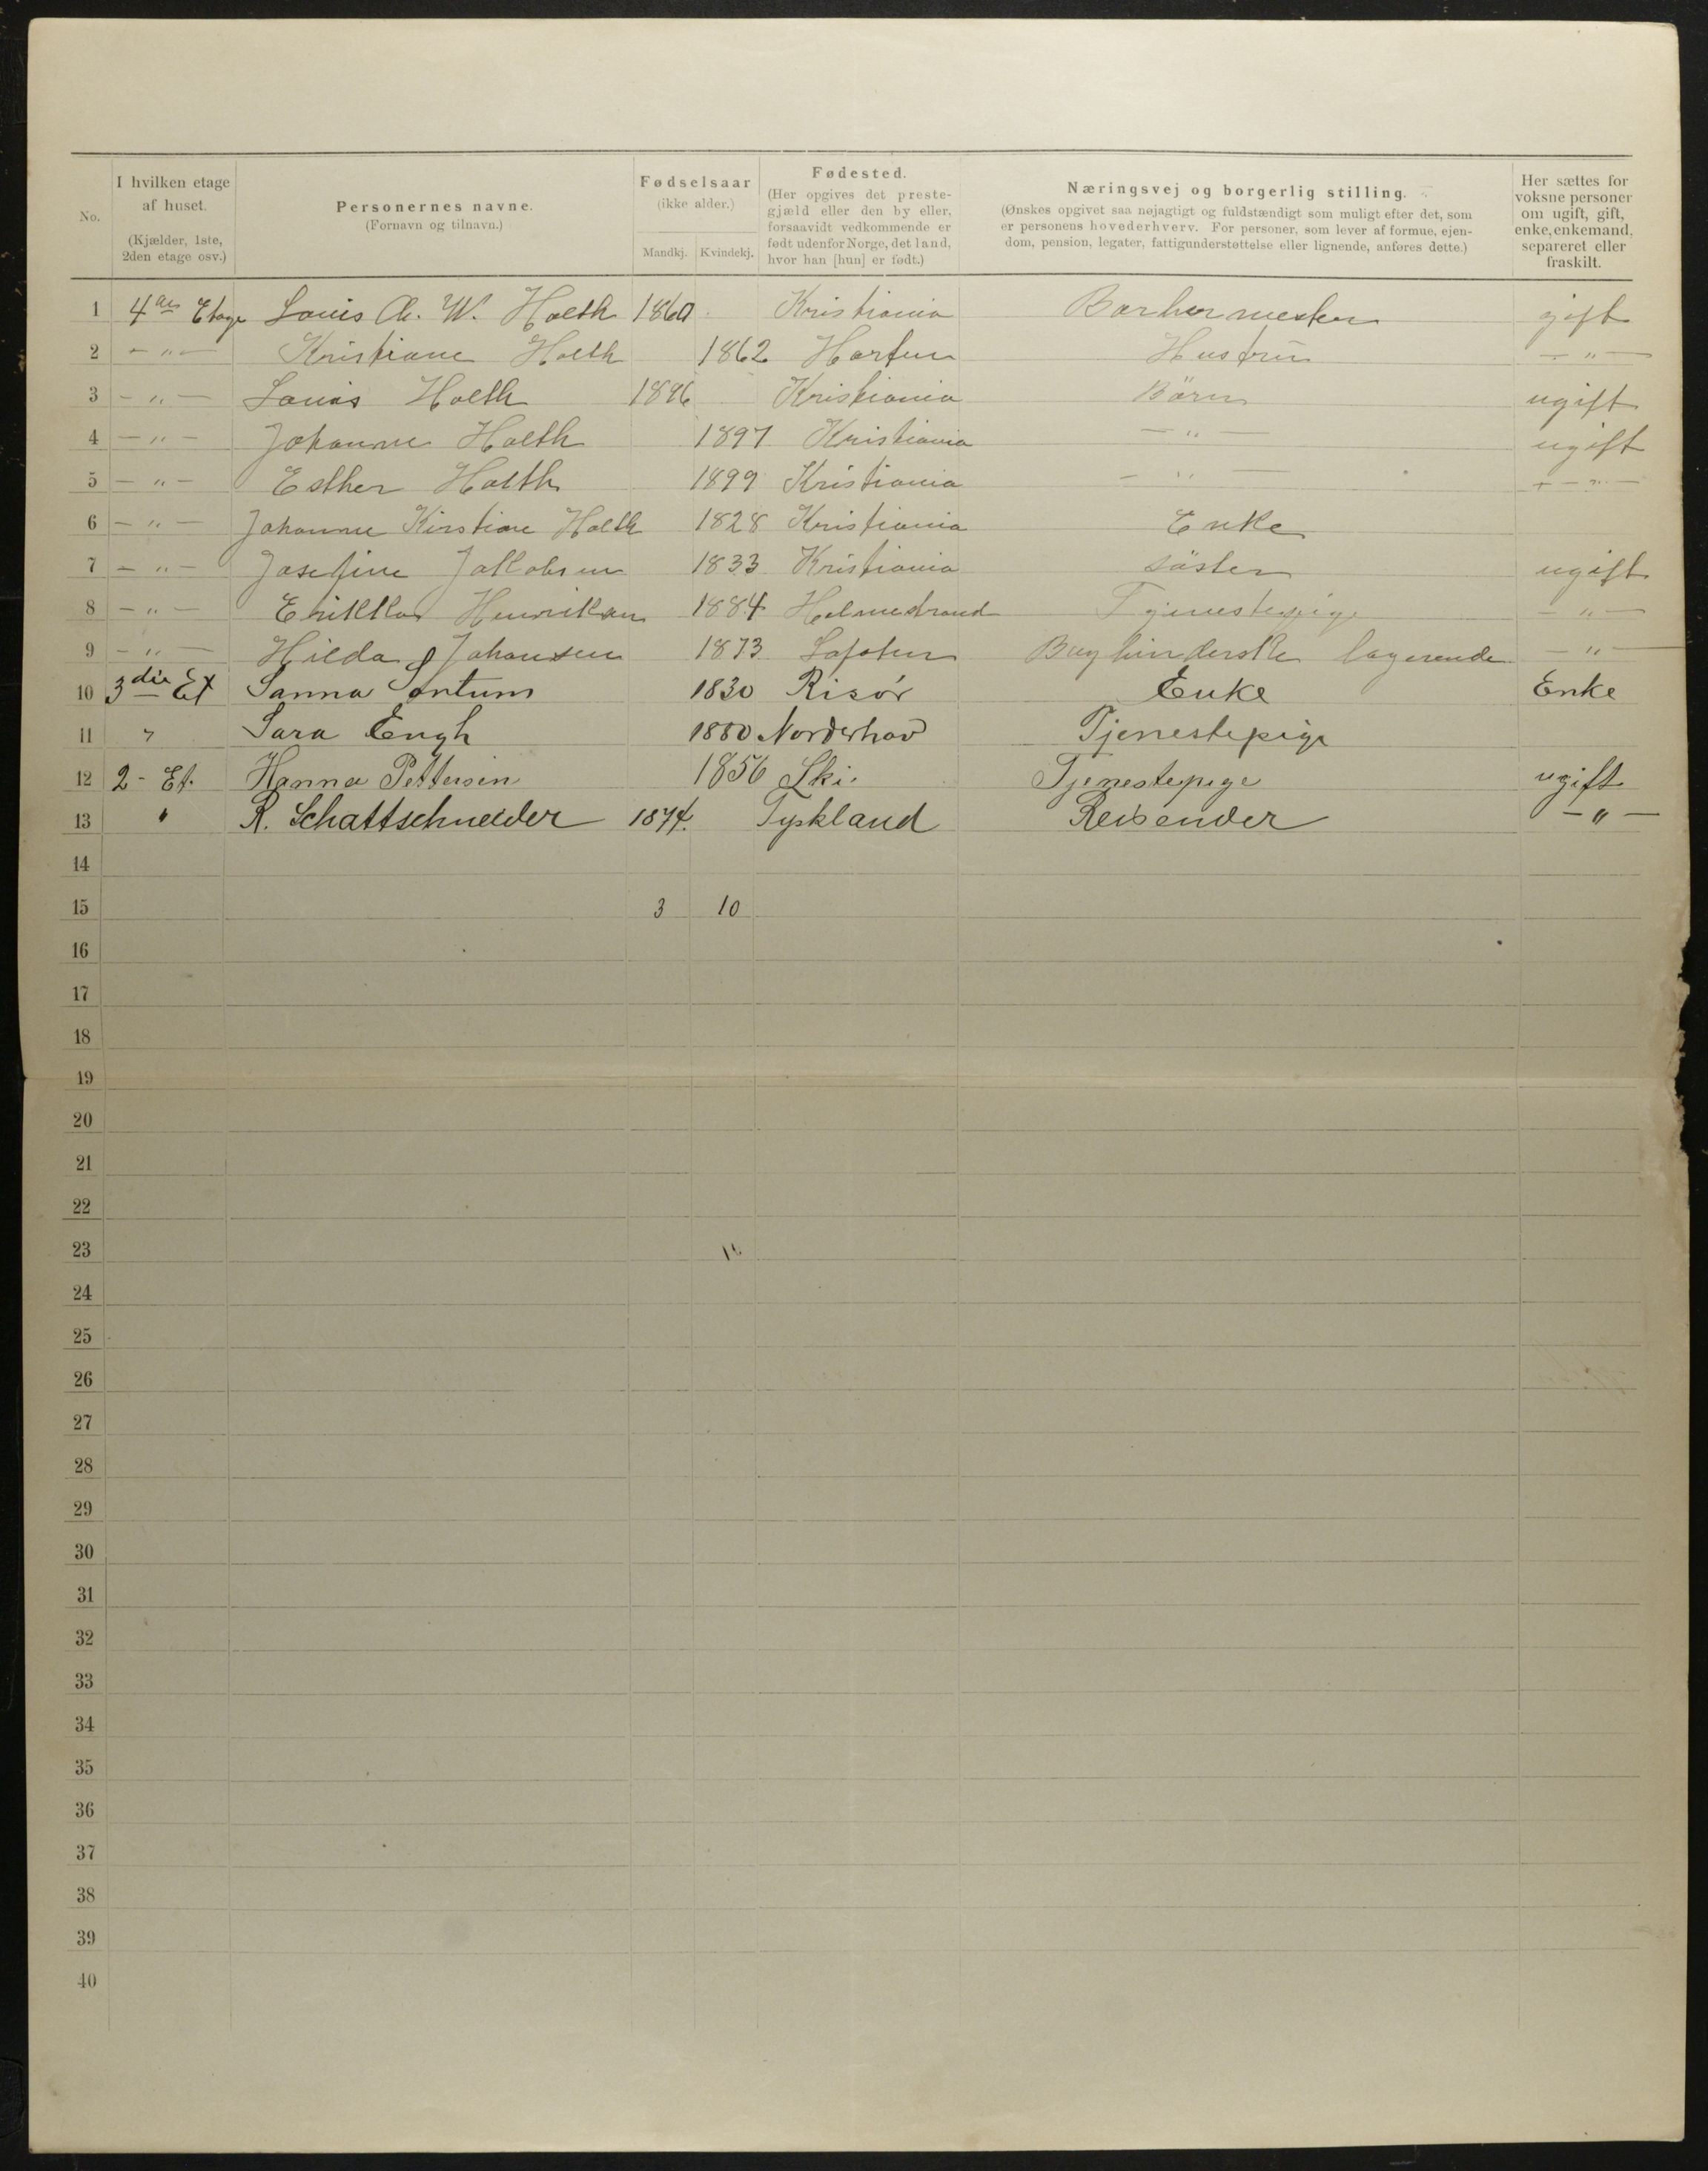 No. I hvilken etage af huset. (Kjælder, 1ste, 2den etage osv.) Personernes navne. (Fornavn og tilnavn.) Fødselsaar (ikke alder.) Mandkj. Kvindekj. Fødested. (Her opgives det prestegjæld eller den by eller, forsaavidt vedkommende er født udenfor Norge, det land, hvor han [hun] er født.) Næringsvej og borgerlig stilling. (Ønskes opgivet saa nøjagtigt og fuldstændigt som muligt efter det, som er personens hovederhverv. For personer, som lever af formue, ejendom, pension, legater, fattigunderstøttelse eller lignende, anføres dette.) Her sættes for voksne personer om ugift, gift, enke, enkemand, separeret eller fraskilt.
1 4de Etage Louis A. W. Holth 1860 Kristiania Barbermester gift
2 - " - Kristiane Holth 1862 Horten Hustru - " -
3 - " - Louis Holth 1896 Kristiania Börn ugift
4 - " - Johanne Holth 1897 Kristiania - " - ugift
5 - " - Esther Holth 1899 Kristiania - " - - " -
6 - " - Johanne Kirstine Holth 1828 Kristiania Enke
7 - " - Josefine Jakobsen 1833 Kristiania söster ugift
8 - " - Erikka Henriksen 1884 Holmestrand Tjenestepige - " -
9 - " - Hilda Johansen 1873 Lofoten Bugbinderske logerende - " -
10 3die Et Sanna Sontum 1830 Risör Enke Enke
11 " Sara Engh 1880 Norderhov Tjenestepige
12 2 - Et. Hanna Pettersen 1856 Ski. Tjenestepige ugift
13 " R. Schattschneider 1874. Tyskland Reisender - " -
14
15 3 10
16
17
18
19
20
21
22
23
24
25
26
27
28
29
30
31
32
33
34
35
36
37
38
39
40